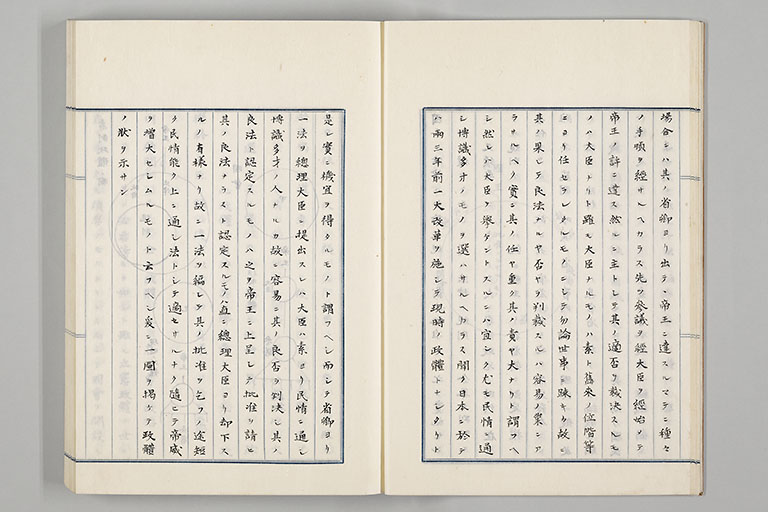 場合ニハ其ノ省卿ヨリ出テ、帝王ニ達スルマテニ種々
ノ手順ヲ經サルヘカラス先ツ參議ヲ經大臣ヲ經始メテ
帝王ノ許ニ達ス然ルニ主トシテ其ノ適否ヲ裁決スルモ
ノハ大臣ナリト雖モ大臣ナルモノハ素ト舊來ノ位階等
ニヨリ任セラレタルモノニシテ勿論世事ニ疎キカ故ニ
其ノ果シテ良法ナルヤ否ヤヲ判裁スルハ容易ノ業ニア
ラサルヘク實ニ其ノ任ヤ重ク其ノ責ヤ大ナリト謂フヘ
シ然レハ大臣ヲ擧ケントスルニハ宜シク尤モ民情ニ通
シ博識多才ノモノヲ選ハサルヘカラス聞ク日本ニ於テ
ハ兩三年前一大改革ヲ施シテ現時ノ政體トナシタリト
是レ實ニ機宜ヲ得タルモノト謂フヘシ而シテ省卿ヨリ
一法ヲ總理大臣ニ提出スレハ大臣ハ素ヨリ民情ニ通シ
博識多才ノ人ナルカ故ニ容易ニ其ノ良否ヲ判決シ其ノ
良法ト認定スルモノハ之ヲ帝王ニ上呈シテ批准ヲ請ヒ
其ノ良法ナラスト認定スルモノハ直ニ總理大臣ヨリ却下ス
ルノ有樣ナリ故ニ一法ヲ編シテ其ノ批准ヲ乞フノ途短
ク民情能ク上ニ通シ法トシテ適セサルナク隨ヒテ帝威
ヲ增大セシムルモノト云フヘシ爰ニ一圖ヲ掲ケテ政體
ノ狀ヲ示サン